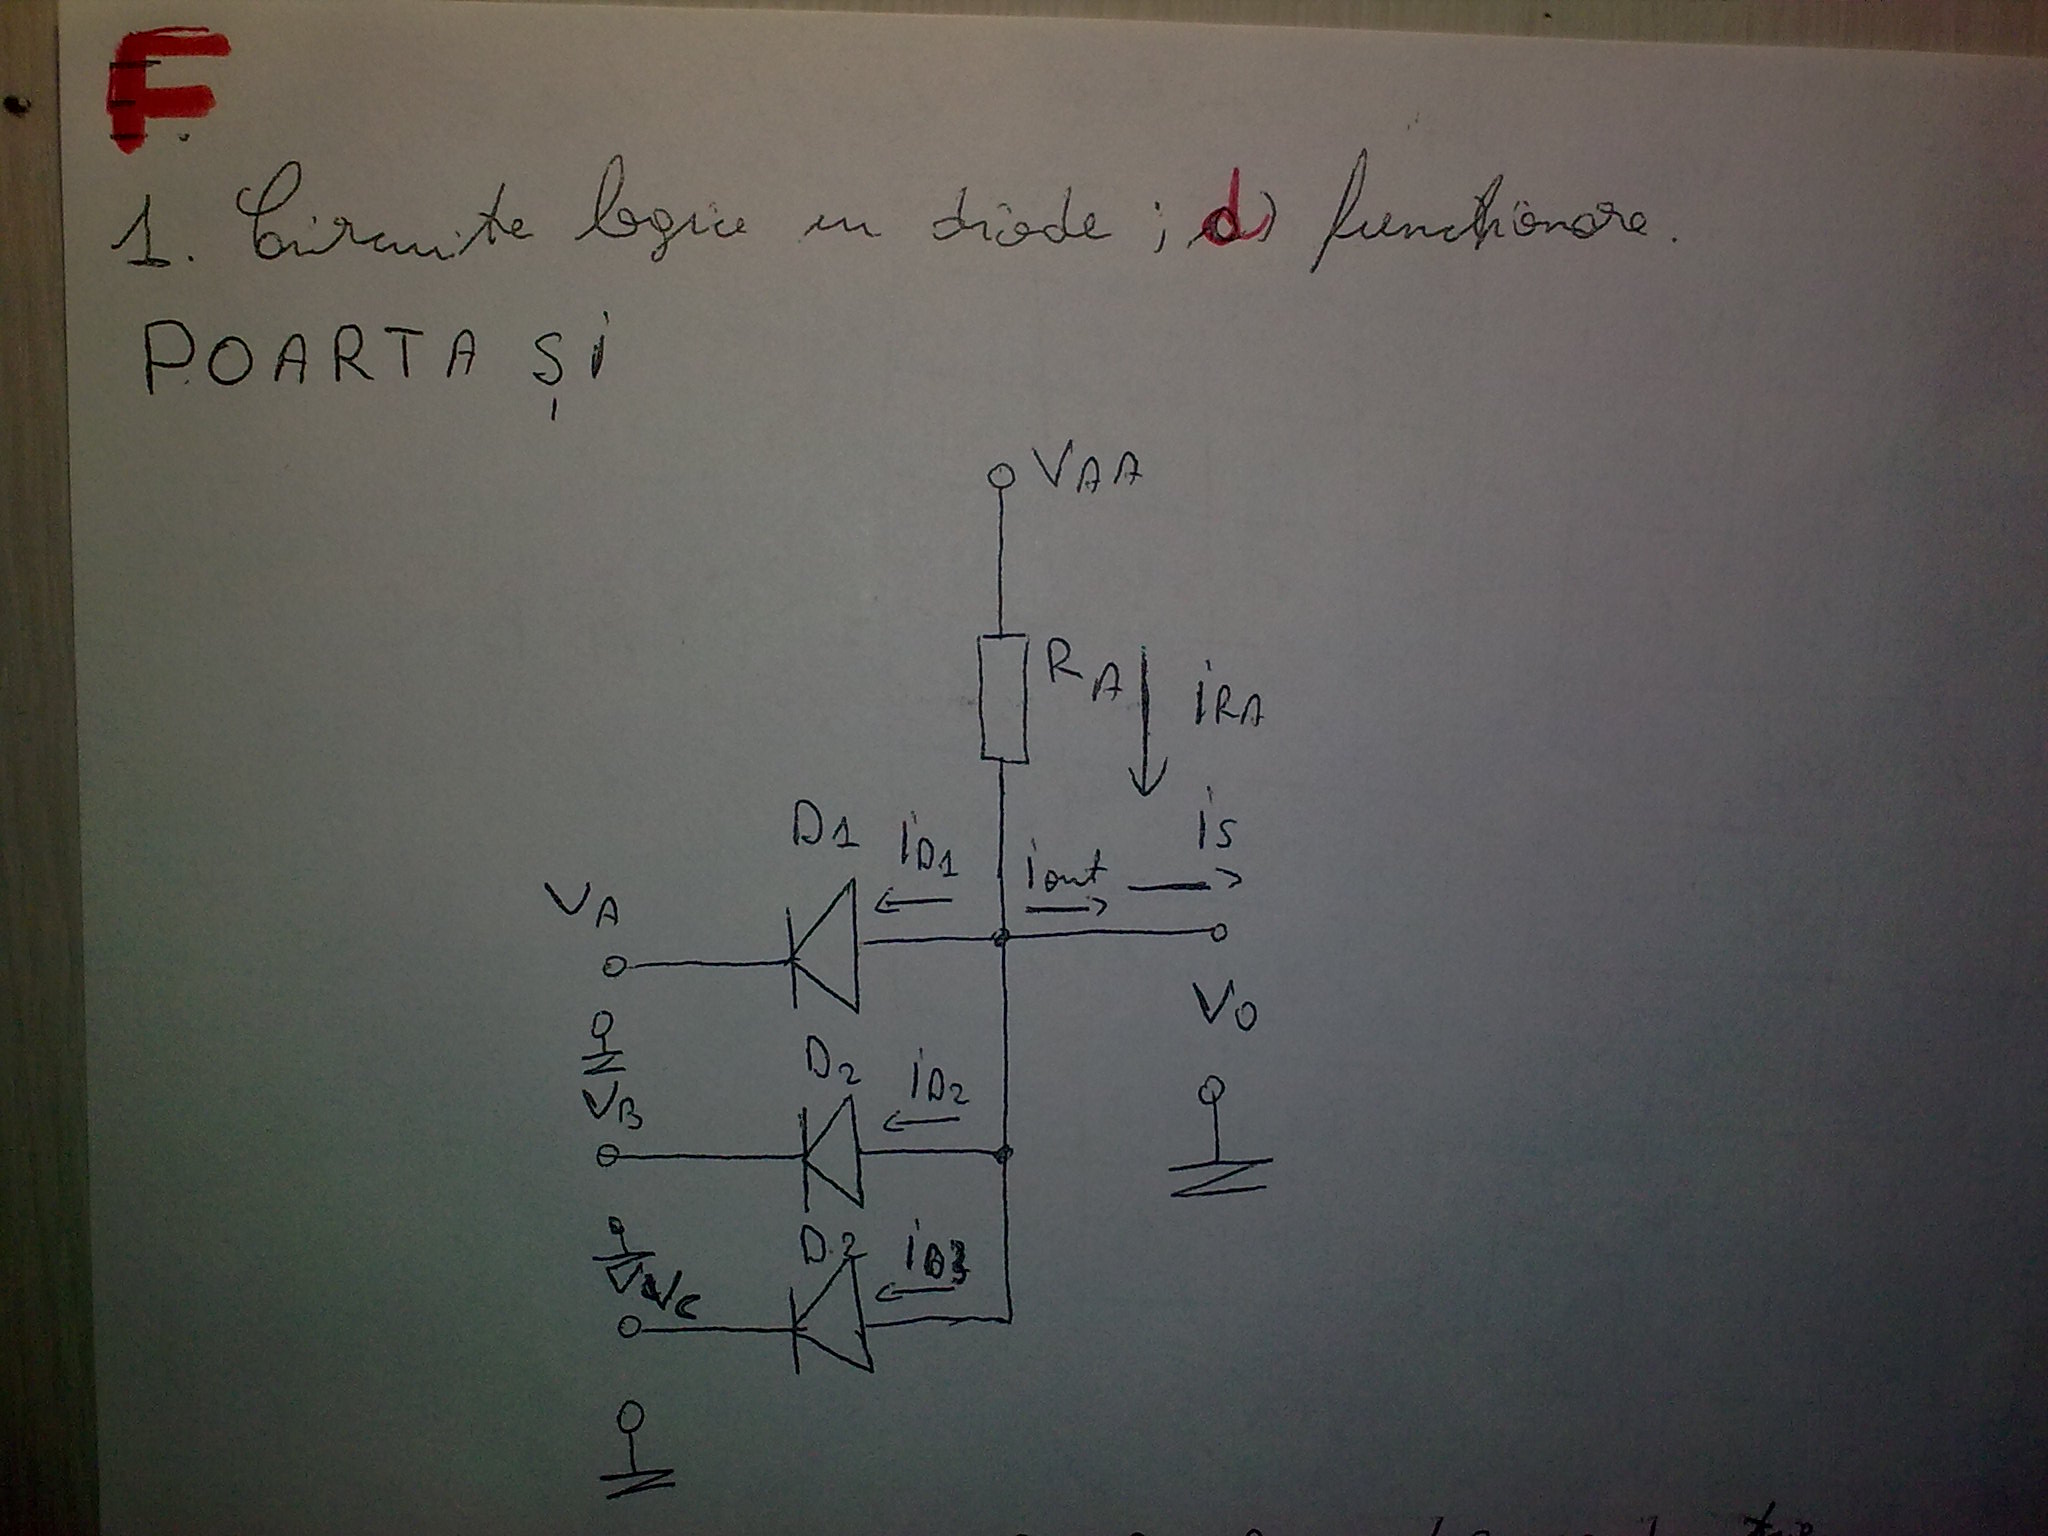 F
1. Circuite logice cu diode ; d) functionare.
POARTA ȘI
VAA
RA
iRA
iS
D1
iD1
iout
VA
VO
D2
iD2
VB
D2
iD3
VC